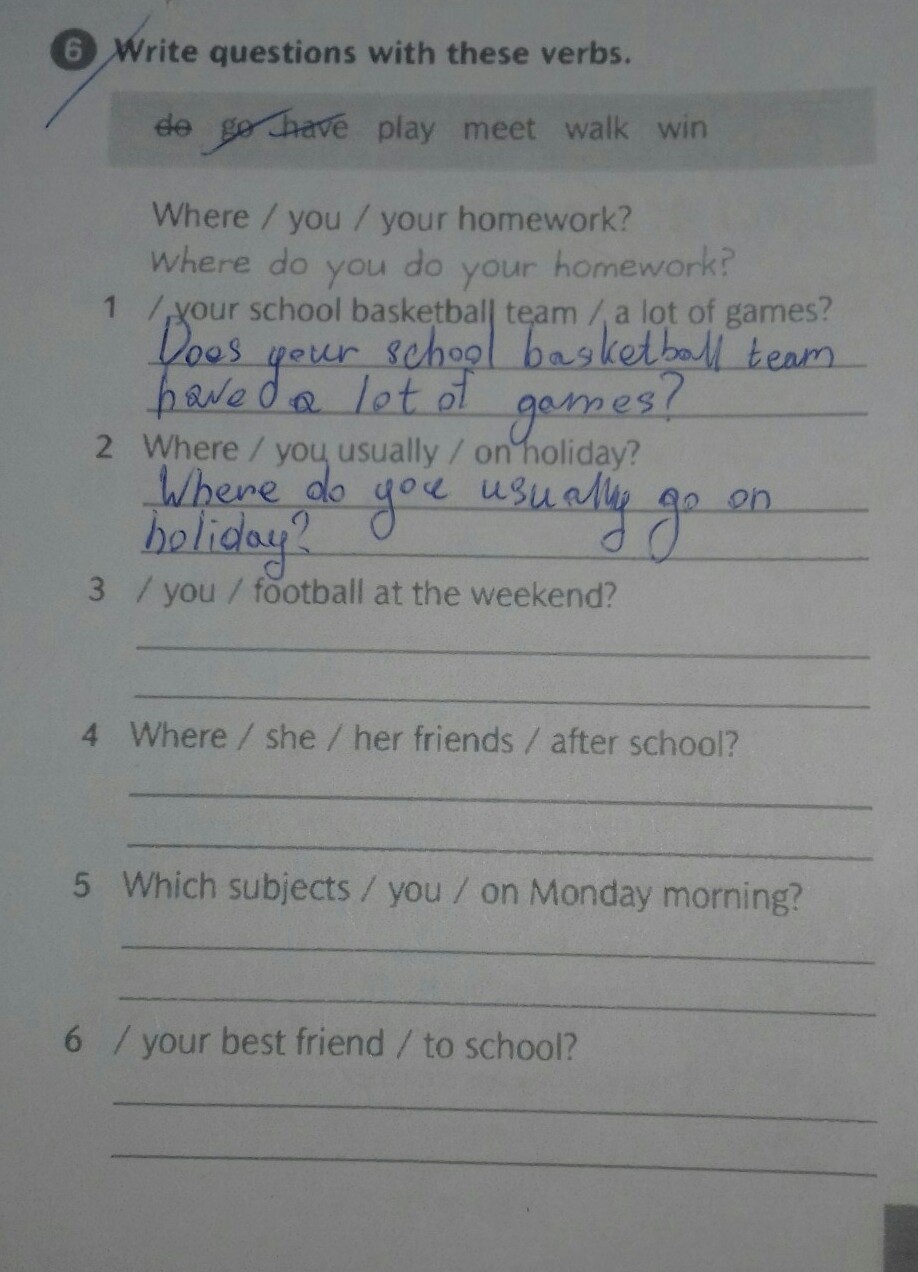 6 Write questions with these verbs.
do go have play meet walk win
Where / you / your homework?
Where do you do your homework?
1 / your school basketball team / a lot of games?
Does your school basketball team
have a lot of games?
2 Where / you usually / on holiday?
Where do you usually go on
holiday?
3 / you / football at the weekend?
4 Where / she / her friends / after school?
5 Which subjects / you / on Monday morning?
6 / your best friend / to school?